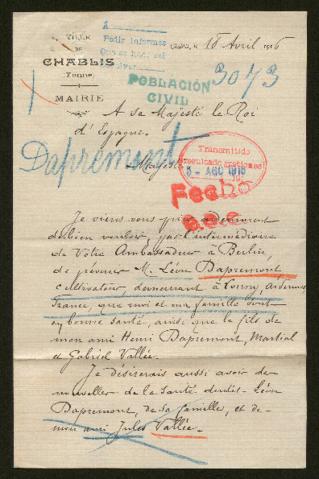 VILLE
DE
CHABLIS
Yonne
MAIRIE
A
Pedir informes
POBLACIÓN
CIVIL
3073
le 18 Avril 1916
A sa Majesté le Roi
d'Espagne.
Dapremont
Majesté
Transmitido
resultado gestiones
3- AGO 1916
Fecho
Je viens vous prier
de bien vouloir, par l'intermédiaire
de Votre Ambassadeur à Berlin,
de prévenir M. Léon Dapremont
cultivateur, demeurant à Ardennes
France, que moi et ma famille sont
en bonne santé, ainsi que le fils de
mon ami Henri Dapremont, Martial
et Gabriel Vallée.
Je désirerais aussi avoir de
nouvelles de la santé dudit Léon
Dapremont, de sa famille, et de
mon ami Jules Vallée.